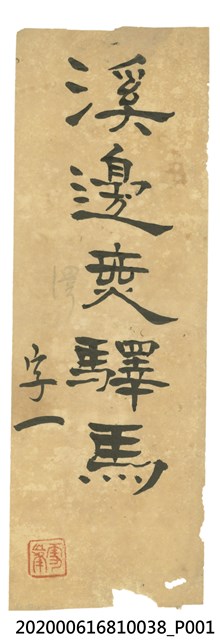 溪邊驛馬
字一
澤
202000616810038_P001